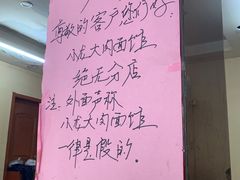 尊敬的客户您们好:
小龙大肉面馆
绝无分店
注:外面声称
小龙大肉面馆
一律是假的.